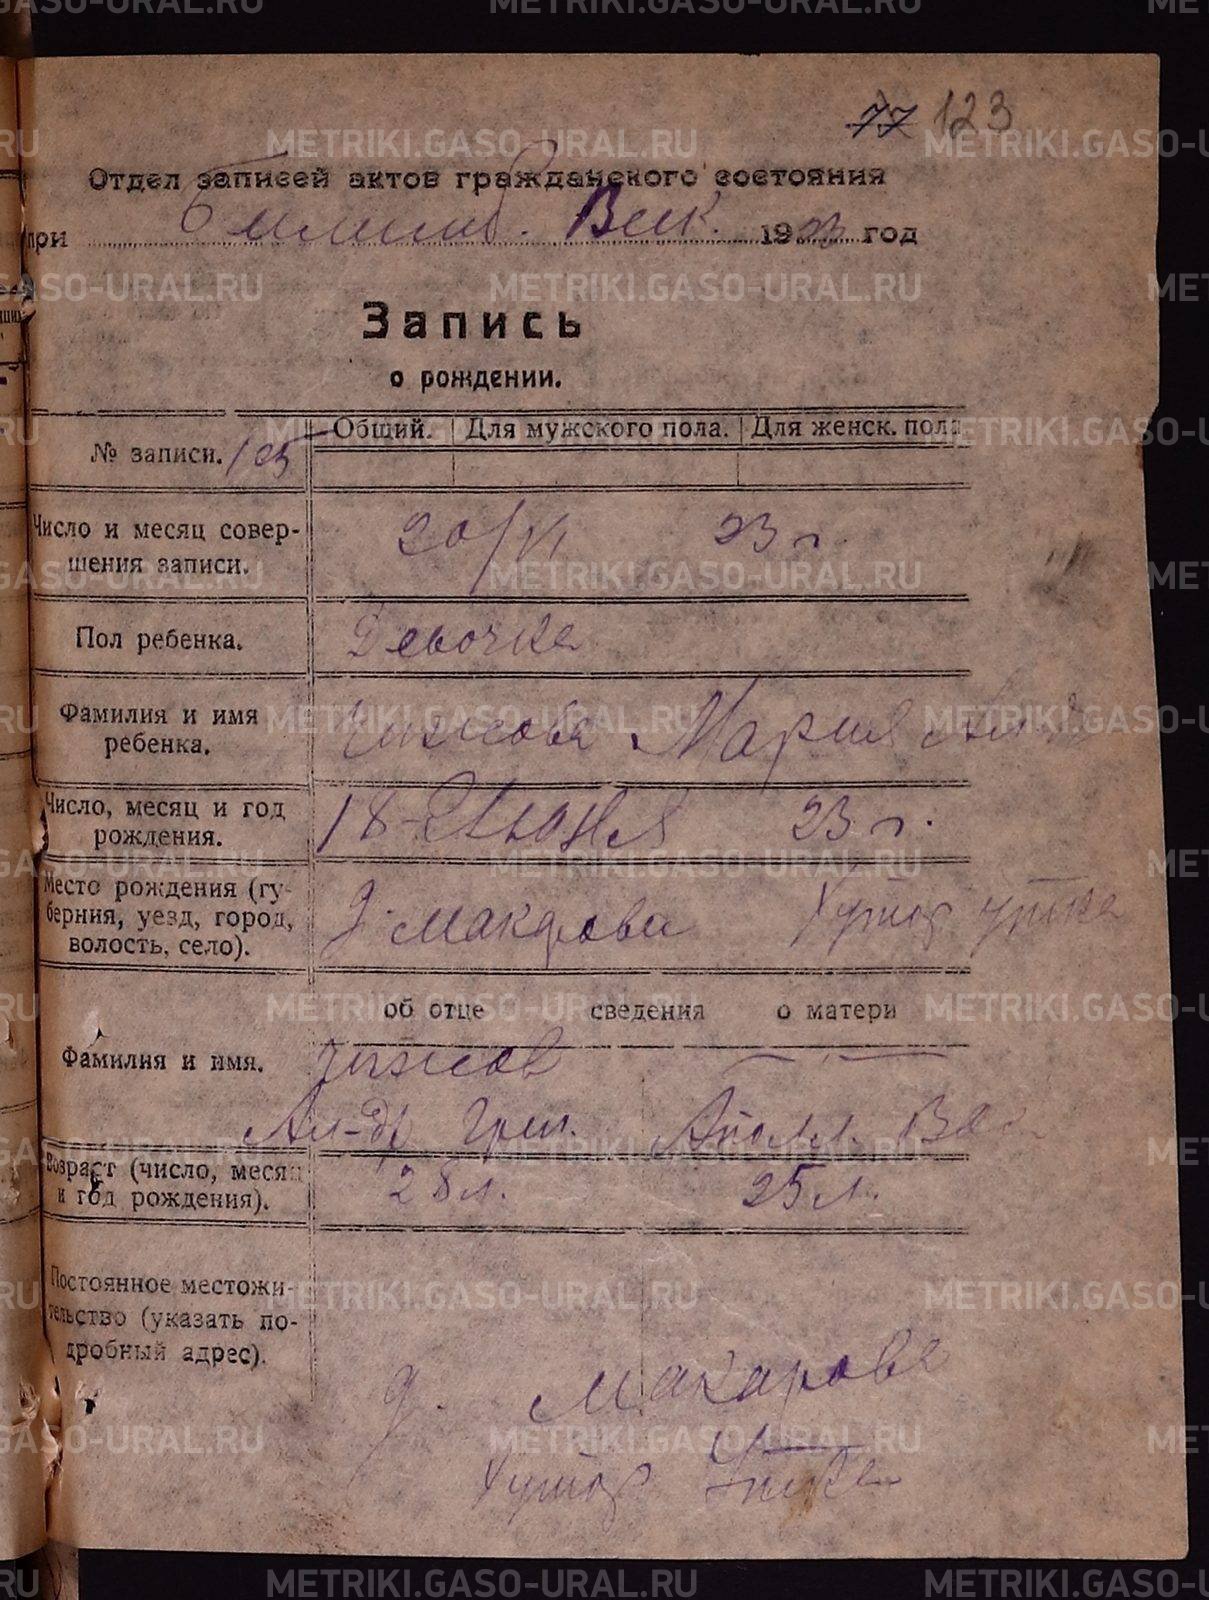 77 123
Отдел записей актов гражданского состояния
при Билимб. Вик. 1923 год
Запись
о рождении.
№ записи. 105 Общий. Для мужского пола. Для женск. пола
Число и месяц совер-
шения записи.
20/VI 23 г.
Пол ребенка. Девочка
Фамилия и имя
ребенка.
Чижова Мария Ал-д
Число, месяц и год
рождения.
18-Июня 23 г.
Место рождения (гу-
берния, уезд, город,
волость, село).
д. Макарова Хутор Утка
об отце сведения о матери
Фамилия и имя.
Чижов
Ал-др Григ. Аполл. Вас
Возраст (число, месяц
и год рождения).
28 л. 25 л.
Постоянное местожи-
тельство (указать по-
дробный адрес).
д. Макарова
Хутор Утка
METRIKI.GASO-URAL.RU